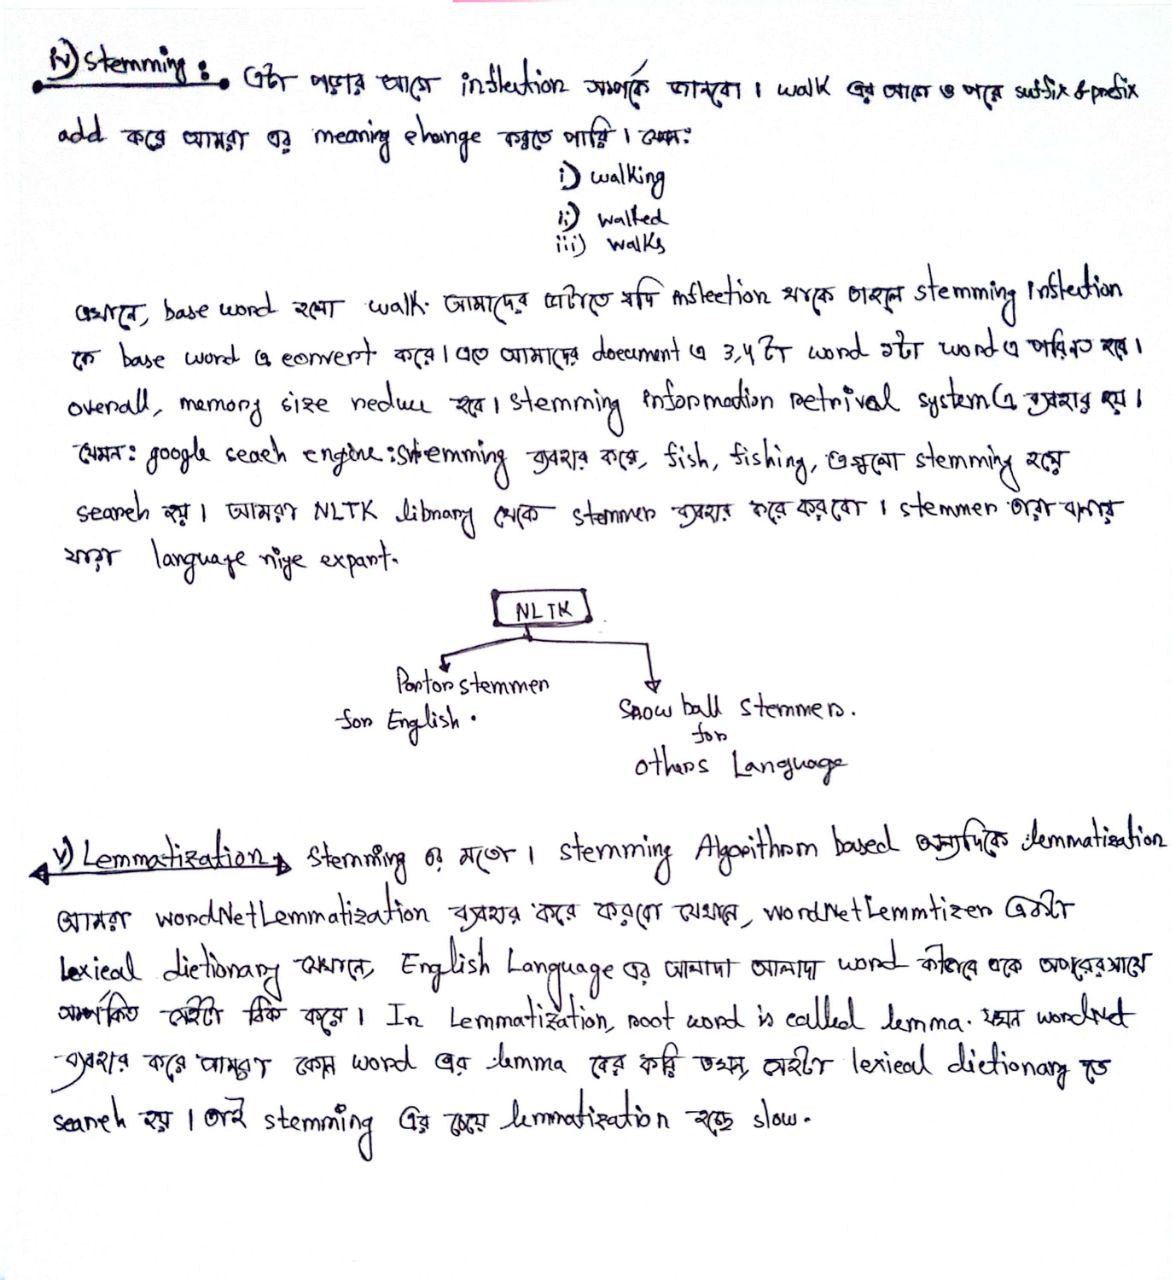 iv) Stemming : এটা পড়ার আগে inflection সম্পর্কে জানবো । walk এর আগে ও পরে suffix & prefix
add করে আমরা এর meaning change করতে পারি । যেমন:
i) walking
ii) walked
iii) walks
এখানে, base word হলো walk. আমাদের ডাটাতে যদি inflection থাকে তাহলে stemming inflection
কে base word এ convert করে । এতে আমাদের document এ 3,4 টা word ১টা word এ পরিনত হবে ।
overall, memory size reduce হবে । Stemming information retrival system এ ব্যবহার হয় ।
যেমন : google seach engine : stemming ব্যবহার করে, fish, fishing, এগুলো stemming হয়ে
search হয় । আমরা NLTK library থেকে stemmer ব্যবহার করে করবো । stemmer তারা বানায়
যারা language niye expart.
NLTK
Portor stemmer
for English.
Snow ball Stemmers.
for
others Language
v) Lemmatization → Stemming এর মতো । stemming Algorithom based অন্যদিকে lemmatization
আমরা wordNetLemmatization ব্যবহার করে করবো যেখানে, wordNetLemmtizer একটা
Lexical dictionary যেখানে, English Language এর আলাদা আলাদা word কীভাবে একে অপরের সাথে
সম্পর্কিত সেইটা ঠিক করে । In Lemmatization, root word is called lemma. যখন wordNet
ব্যবহার করে আমরা কোন word এর lemma বের করি তখন, সেইটা lexical dictionary তে
search হয় । তাই stemming এর চেয়ে lemmatization হচ্ছে slow.